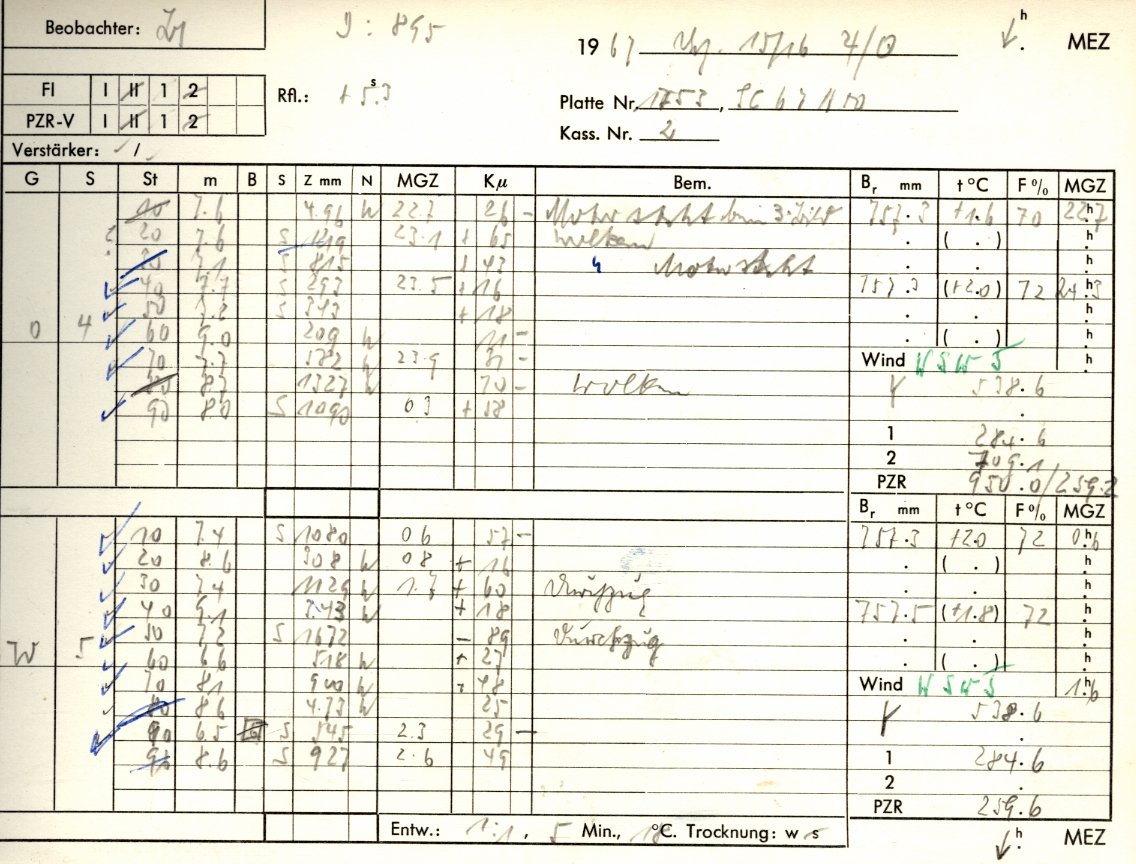 Beobachter:
J : 895
19 67 15/16
h
. MEZ
FI I II 1 2
PZR-V I II 1 2
Rfl.: + 5.3 s
Platte Nr. 1753 ,
Kass. Nr. 2
Verstärker: /
G S St m B S Z mm N MGZ Kµ Bem. Br mm t °C F % MGZ
10 7.6 4.96 W 22.7 26 - Motor steht beim 757.3 +1.6 70 22.7
20 7.6 S 23.1 + 65 Wolken ( . ) h
7.1 S 815 + 43 " Motor steht
40 7.7 S 293 23.5 + 16 757.3 (+2.0) 72 24.3
50 S 343 + 18
0 4 60 9.0 209 W 11 - ( . ) h
70 7.7 W 23.9 - Wind WSW 5
8.7 1327 W 70 - Wolken 538.6
90 8.0 S 1090 03 + 58
1 284.6
2 709.1
PZR 950.0/259.2
Br mm t °C F % MGZ
10 7.4 S 1080 06 57 - 757.3 +2.0 72 0.6
20 8.6 308 W 08 + 16 ( . ) h
30 7.4 1129 W + 60 Durchzug
40 9.1 3.43 W + 18 757.5 (+1.8) 72
50 7.2 S 1672 - 89 Durchzug
W 5 60 518 W + 27 ( . ) h
70 8.1 900 W 48 Wind WSW 5 1.6
8.6 4.73 W 25 538.6
90 6.5 S 545 2.3 29 -
8.6 S 927 2.6 49 1 284.6
2 .
PZR 259.6
Entw.: 1:1 , 5 Min., 18 °C. Trocknung: w s
h
. MEZ